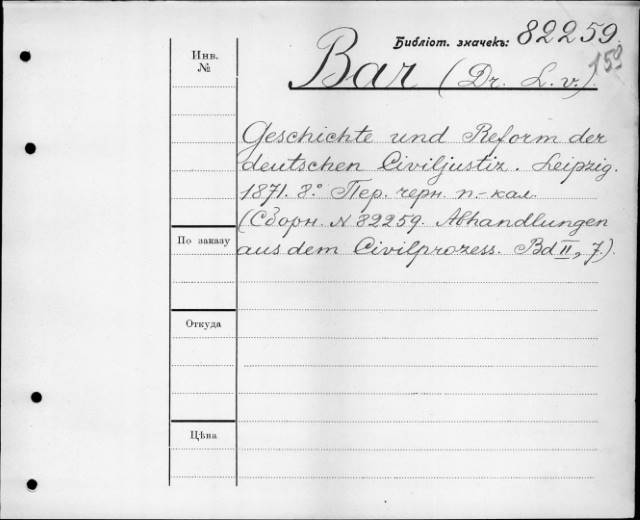 Библіот. значекъ: 82259.
159
Инв.
№
Bar (Dr. L. v.)
Geschichte und Reform der
deutschen Civiljustiz. Leipzig.
1871. 8.° Пер. черн. п.-кал.
(Сборн. N 82259. Abhandlungen
По заказу
aus dem Civilprozess. Bd II, 7.)
Откуда
Цѣна